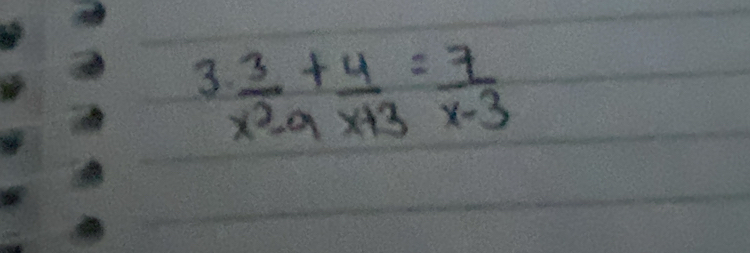 3. 3/x²-9 + 4/x+3 = 7/x-3